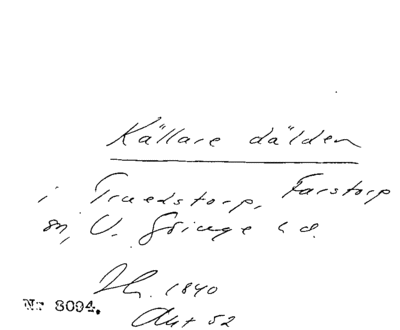 Källare dälden
i Truedstorp, Farstorp
sn, V. Göinge hd.
Th. 1840
Akt 52
Nr 8094.